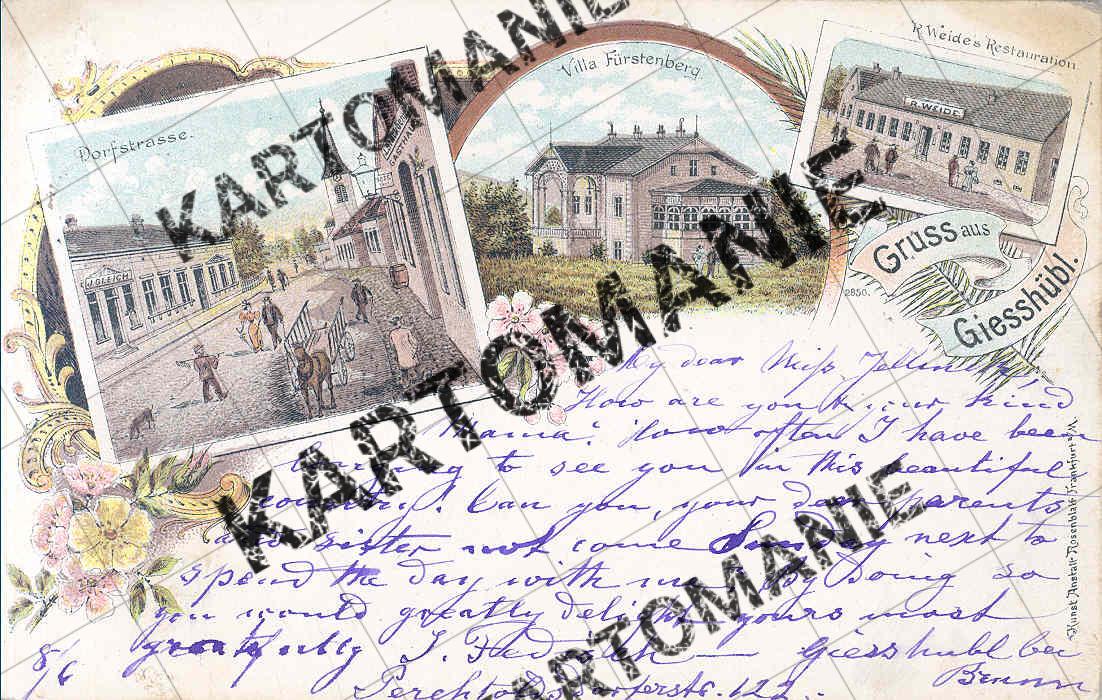 Dorfstrasse.
J. GLEICH
GASTHAUS
Villa Fürstenberg.
R. Weide's Restauration
R. WEIDE
Gruss aus
Giesshübl.
2850.
Kunst Anstalt Rosenblatt Frankfurt a/M.
My dear Miss
How are you & your kind
Mama? How often I have been
longing to see you in this beautiful
country! Can you, your dear parents
and sister not come Sunday next to
spend the day with me? By doing so
you would greatly delight yours most
gratefully J. — Giesshubl bei
8/6
Brunn
122.
KARTOMANIE
KARTOMANIE
KARTOMANIE